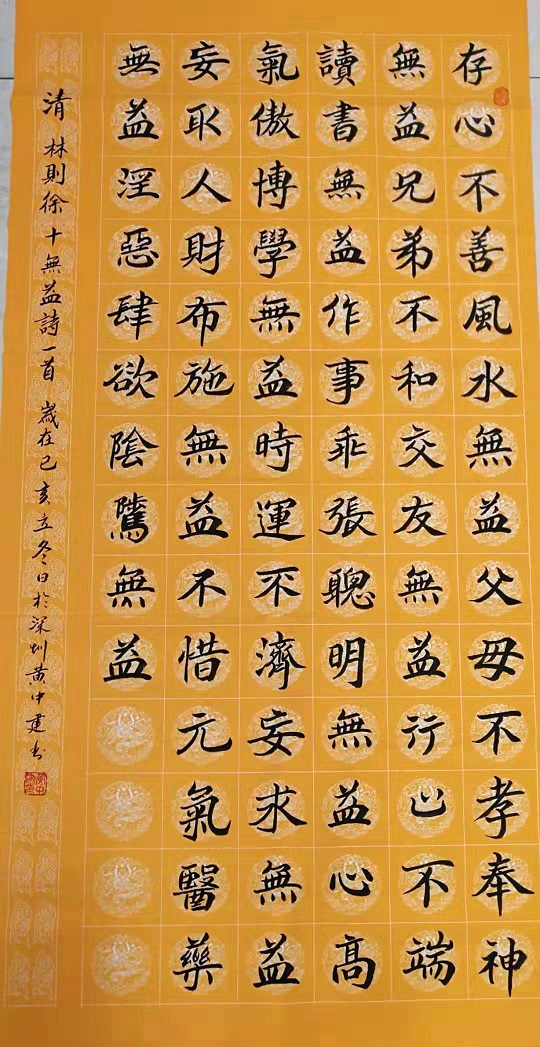 存心不善風水無益父母不孝奉神
無益兄弟不和交友無益行止不端
讀書無益作事乖張聰明無益心高
氣傲博學無益時運不濟妄求無益
妄取人財布施無益不惜元氣醫藥
無益淫惡肆欲陰騭無益
清 林則徐十無益詩一首 歲在己亥立冬日於深圳黄中建书